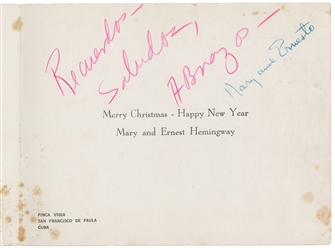 Recuerdos-
Saludos,
Abrazos-
Mary and Ernesto
Merry Christmas - Happy New Year
Mary and Ernest Hemingway
FINCA VIGIA
SAN FRANCISCO DE PAULA
CUBA